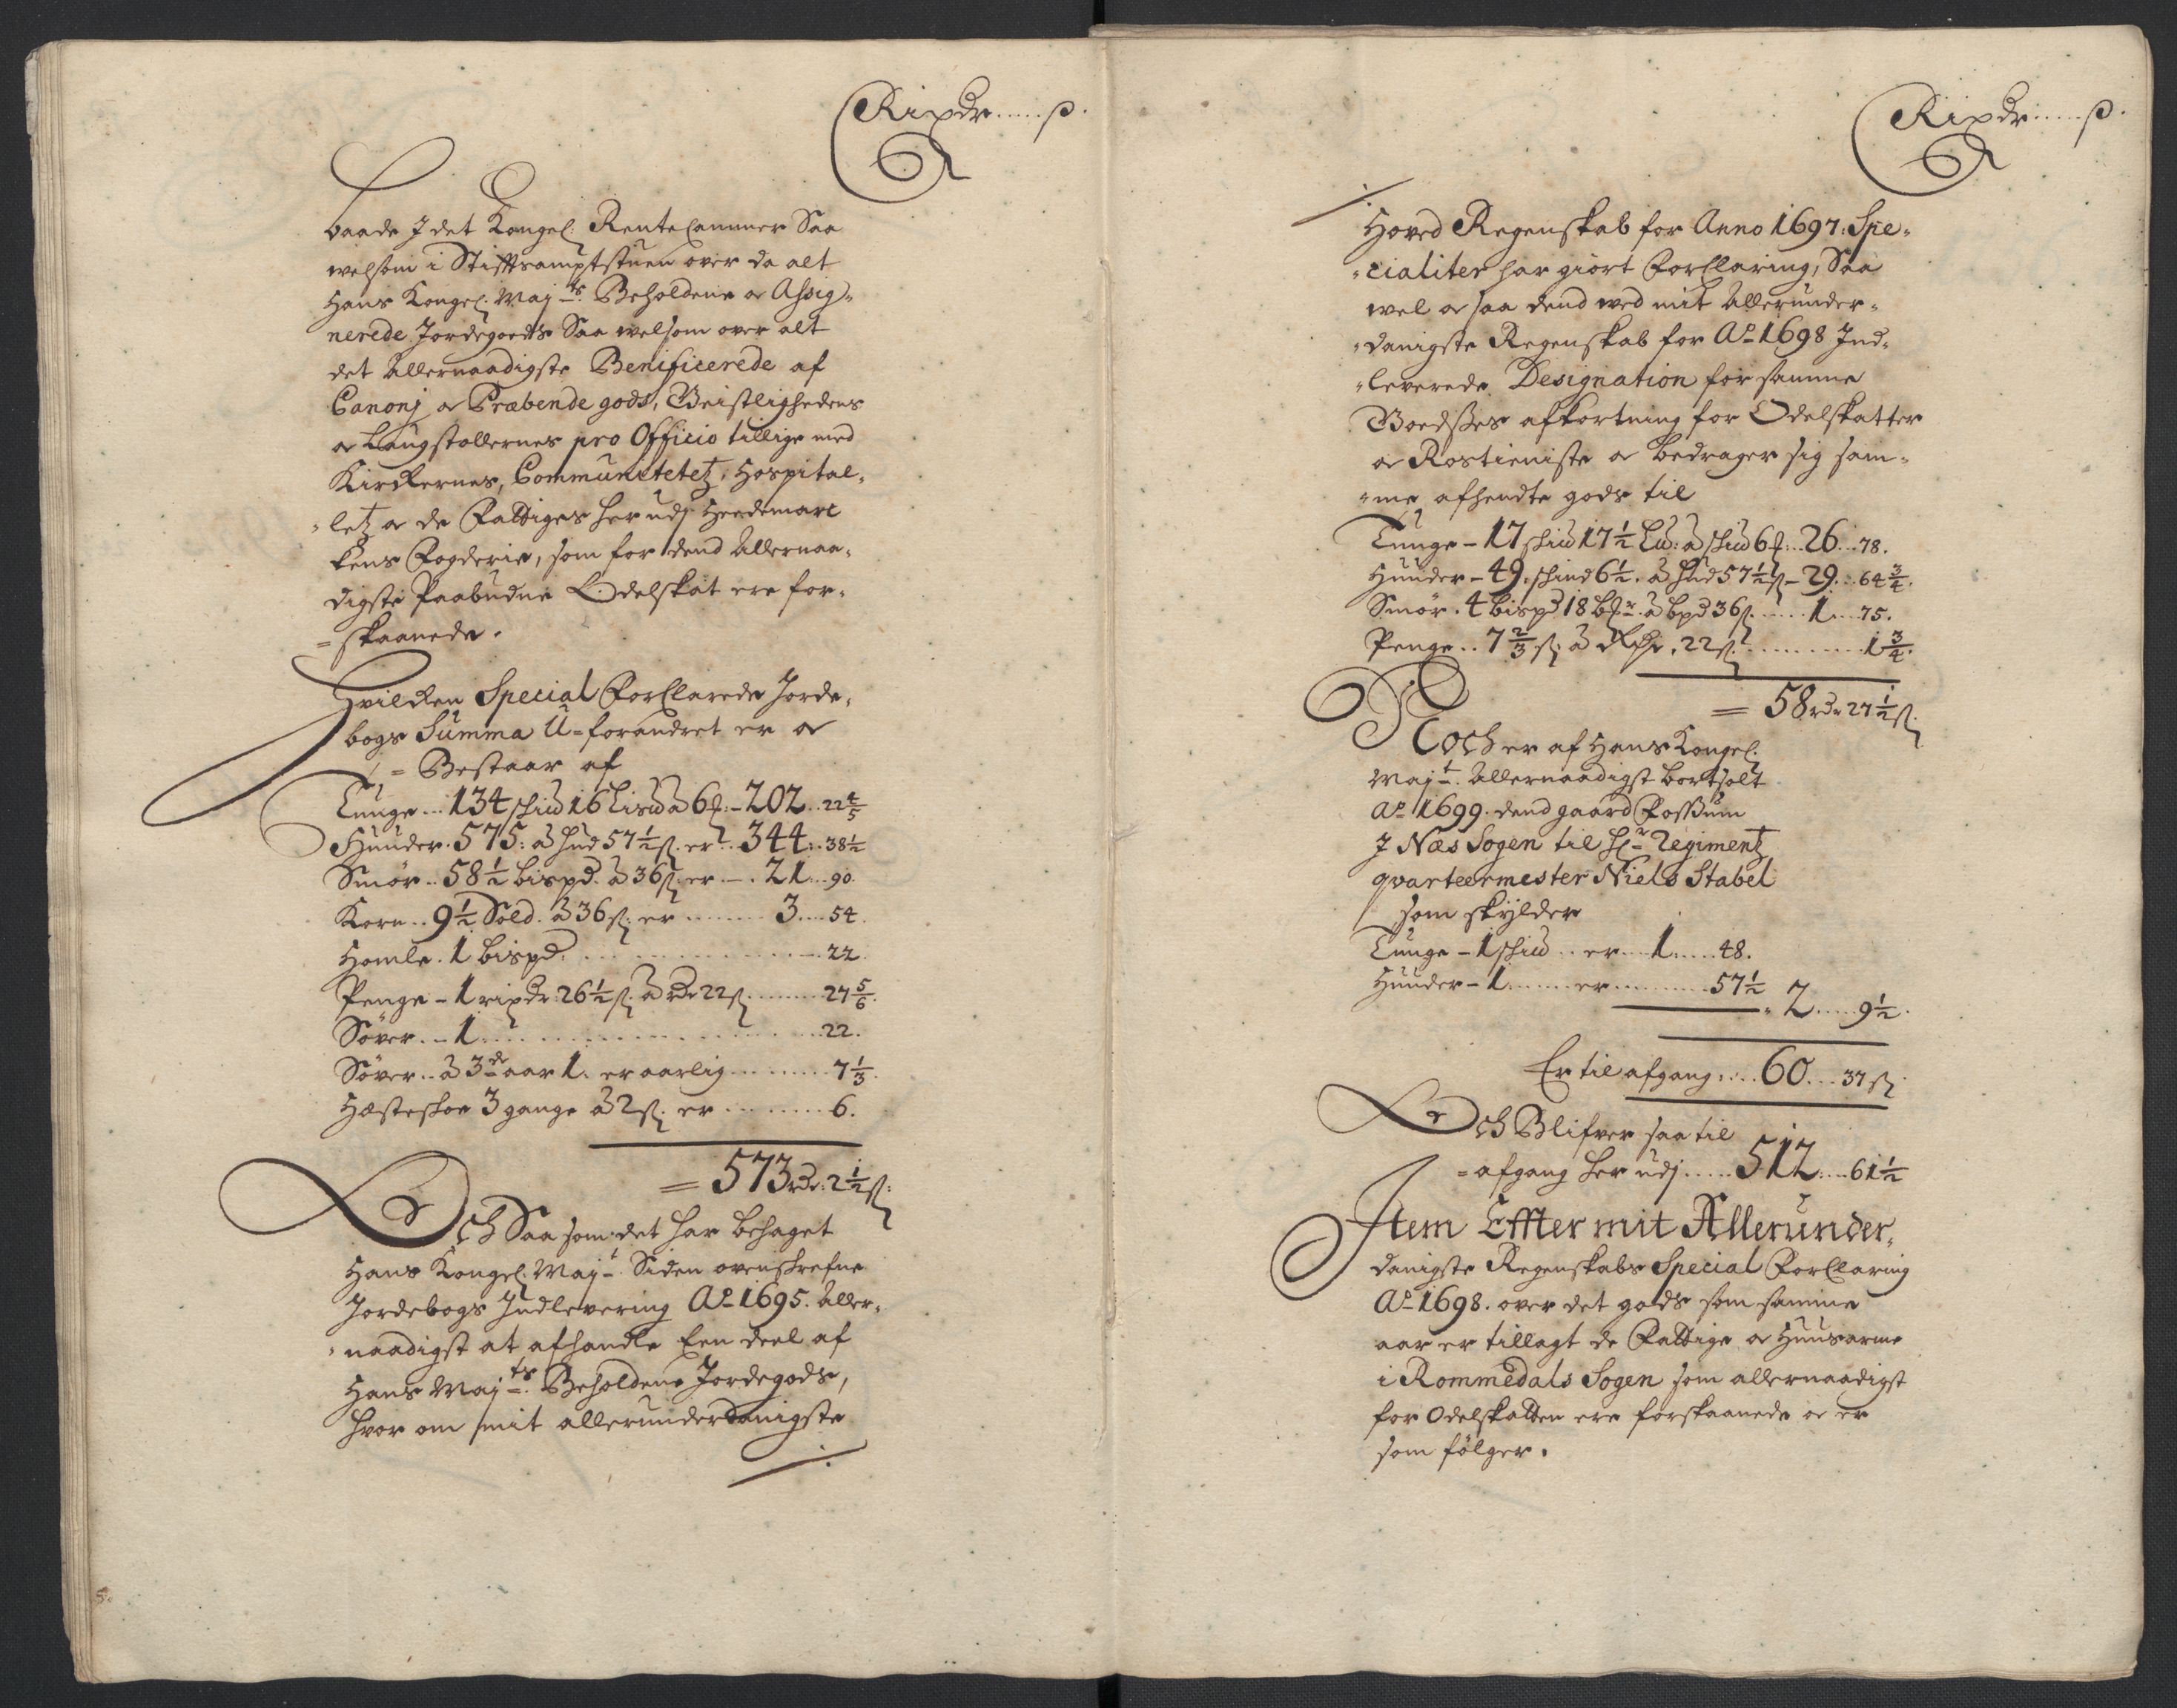 Rixdr.....ß.
baade J det Kongel: Rente Cammer Saa
welsom i Stifftsamptstuen over da alt
Hans Kongel: Maj ts. Beholdene oc Assig-
nerede Jordegoeds Saa welsom over alt
det Allernaadigste Benificerede af
Canonj oc Præbende gods, Geistlighedens
oc Laugstollernes pro Officio tillige med
Kirckernes, Communitetetz, Hospital-
letz oc de Fattiges her udj Heedemarc
kens Fogderie, som for dend Allernaa-
digste Paabudne Odelskat ere for-
=skaanede.
Hvilcken Special Forclarede Jorde-
bogs Summa U=forandret er oc
= Bestaar af
Tunge... 134 schiu 16 Lisu â 6 f:- 202.. 22 4/5
Huuder. 575: â hud 57 1/2 ß. er .. 344:.38 1/2
Smör.. 58 1/2 bispd. â 36 ß: er -. 21...90.
Korn.. 9 1/2 Sold. â 36 ß: er ....... 3....54.
Homle. 1 bispd. ................22.
Penge - 1 rixdr: 26 1/2 ß. â rdr 22 ß.........27 5/6.
Söver.. - 1 ................22.
Söver.. â 3de aar 1. er aarlig ........7 1/3.
Hæsteskoe 3 gange â 2 ß. er ........6.
= 573 rdr: 2 1/2 ß:
Och Saa som det har behaget
Hans Kongel: Maj t. Siden ovenschrefne
Jordebogs Indlevering Ao 1695. Aller-
naadigst at afhandle Een deel af
Hans Maj ts. Beholdene Jordegods,
hvor om mit allerunderdanigste
Rixdr.....ß.
Hoved Regenskab for Anno 1697: Spe-
cialiter har giort Forclaring, Saa
wel oc saa dend wed mit Allerunder-
danigste Regenskab for Ao 1698 Ind-
leverede Designation for samme
Goedsses afkortning for Odelskatter
oc Rostieniste oc bedrager sig sam-
me afhendte gods til
Tunge - 17 schiu 17 1/2 Lu: â schiu 6 f:.. 26...78.
Hunder - 49. schind 6 1/2. â hud 57 1/2 ß - 29...64 3/4.
Smör. 4 bispd 18 bfr. â bpd 36 ß. .....1....75.
Penge.. 7 2/3 ß: â 22 ß. ..........1 3/4.
= 58 rdr 27 1/2 ß.
Noch er af Hans Kongel:
Maj t. Allernaadigst bortsolt
Ao 1699. dend gaard Fossum
J Næs Sogen til Hr Regimentz
qvarteermester Niels Stabel
som skylder
Tunge - 1 schiu .. er .... 1.....48.
Huuder - 1 ....... er ..........57 1/2
2.....9 1/2.
Er til afgang.... 60...37 ß:
Och Blifver saa til
=afgang her udj..... 512....61 1/2
Item Effter mit Allerunder-
danigste Regenskabs Special Forclaring
Ao 1698. over det gods som samme
aar er tillagt de Fattige oc Huusarme
i Rommedals Sogen som allernaadigst
for Odelskatten ere forskaanede oc er
som fölger.